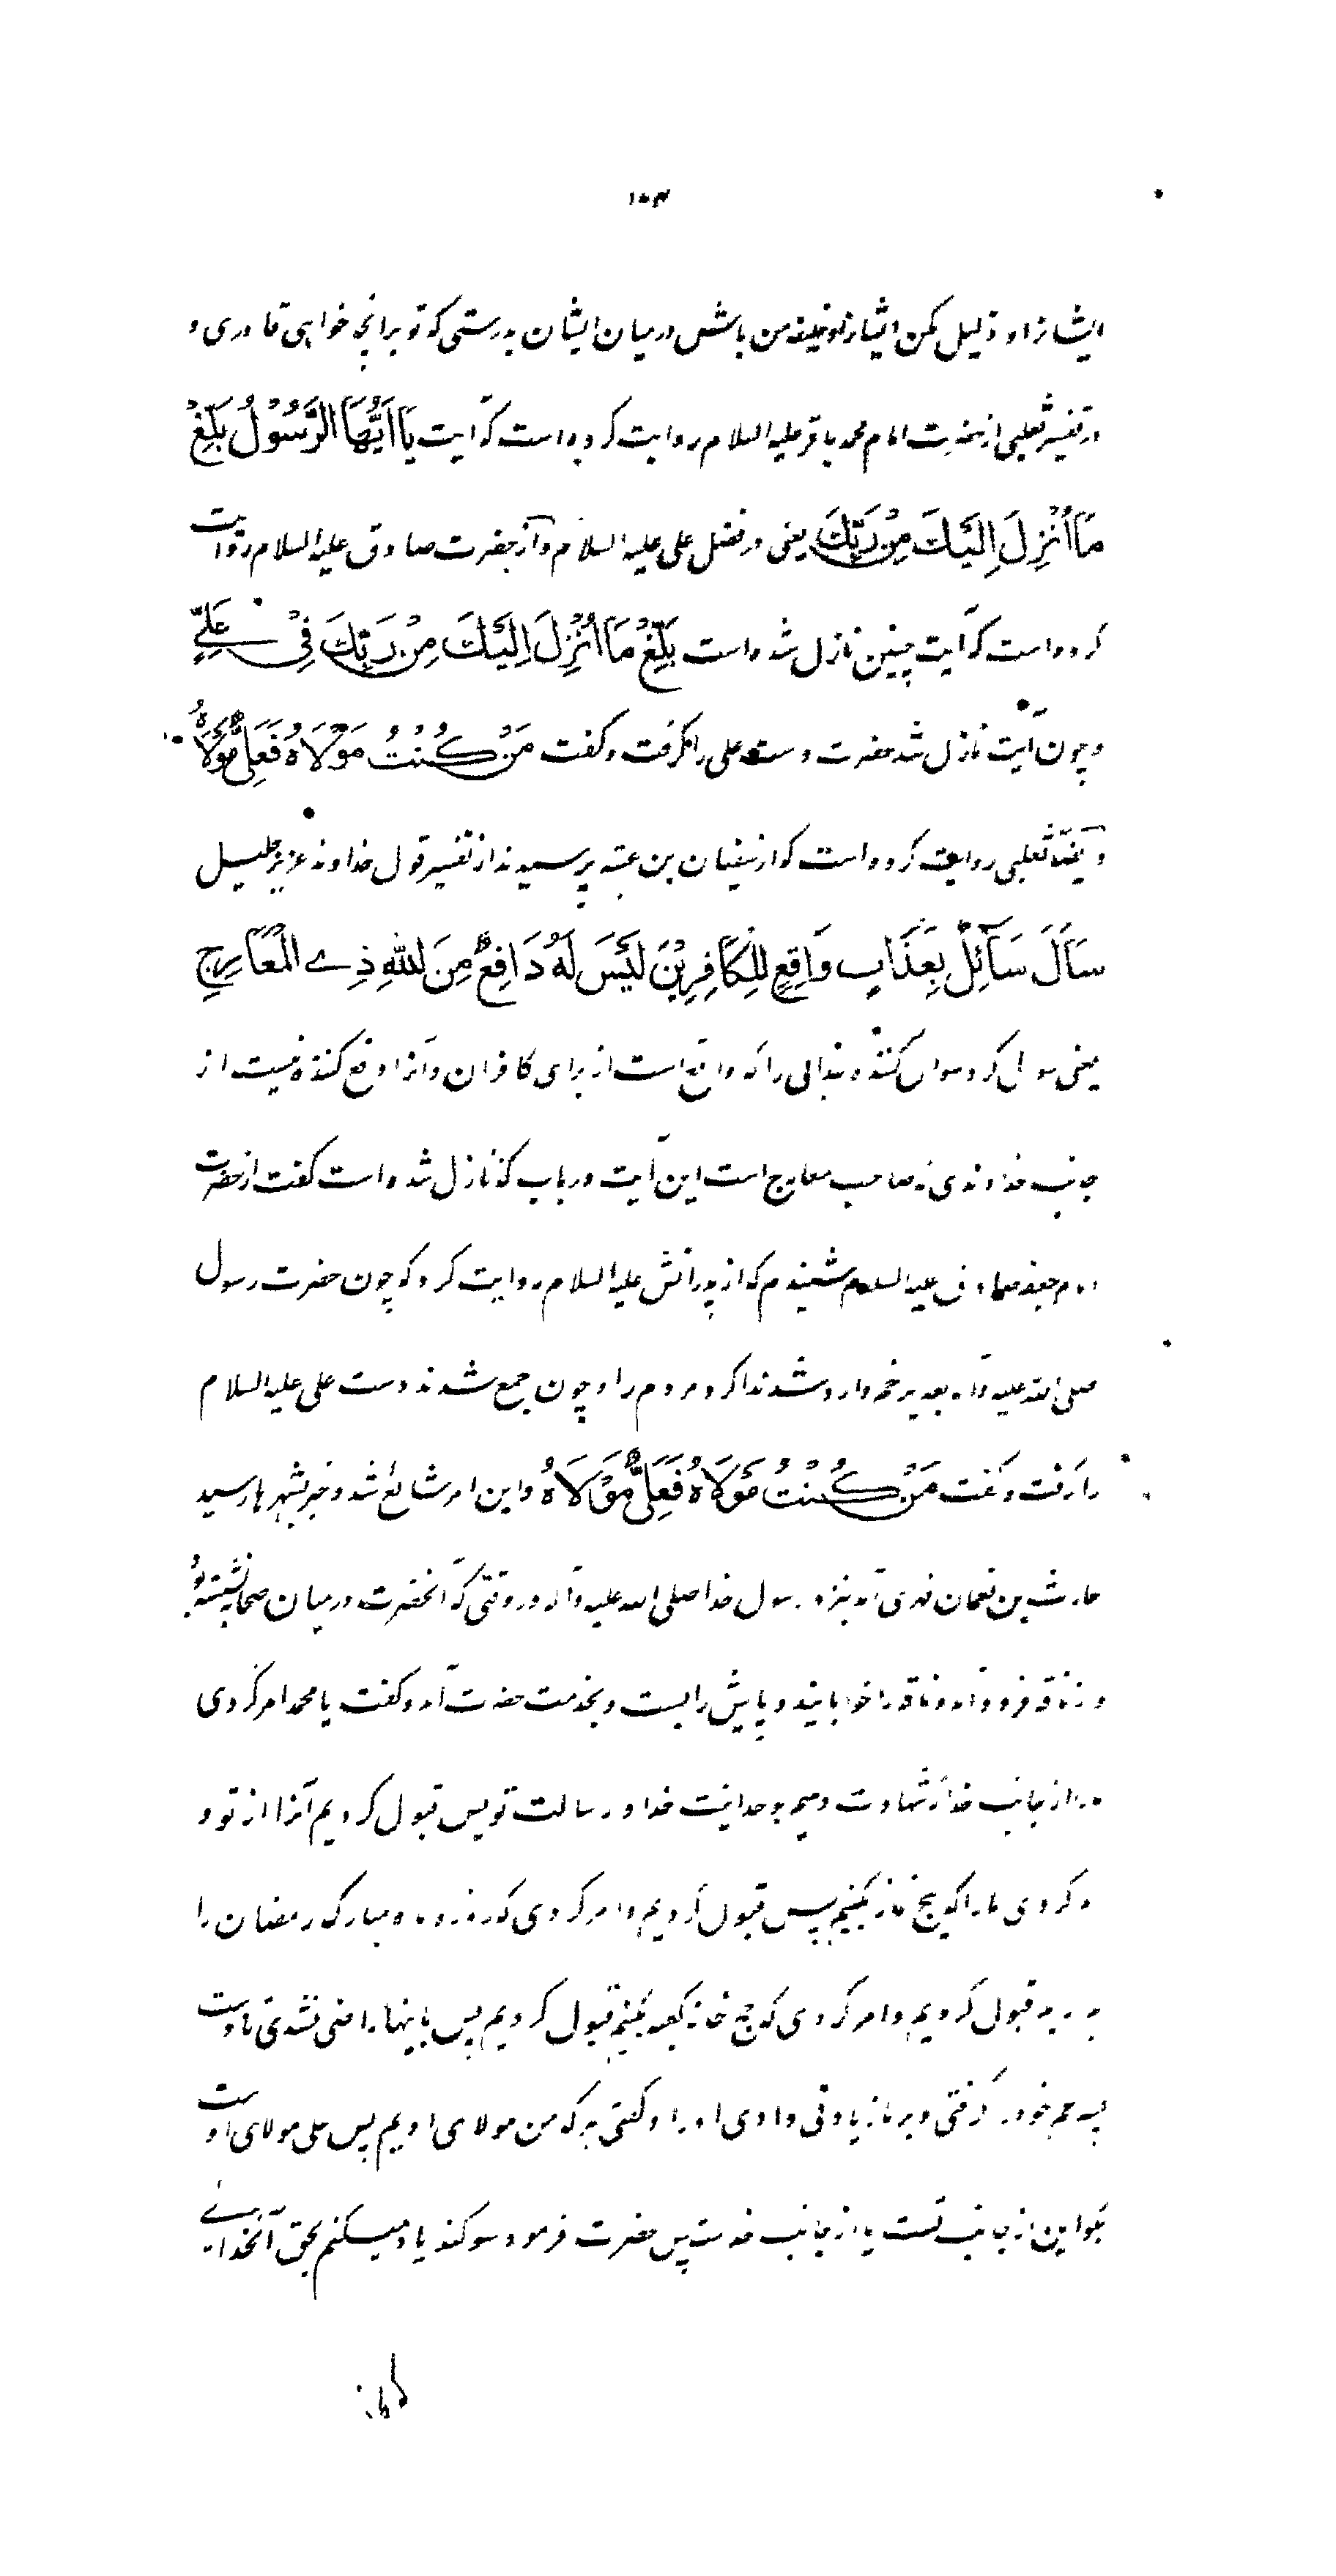 ۱۰۳
ایشانرا و ذلیل مکن ایشانرا و خلیفه من باش در میان ایشان بدرستی که تو بر انچه خواهی قادری و
در تفسیر ثعلبی از حضرت امام محمد باقر علیه السلام روایت کرده است که آیت يَا اَيُّهَا الرَّسُوْلُ بَلِّغْ
مَا اُنْزِلَ اِلَيْكَ مِنْ رَبِّكَ یعنی در فضل علی علیه السلام و از حضرت صادق علیه السلام روایت
کرده است که آیت چنین نازل شده است بَلِّغْ مَا اُنْزِلَ اِلَيْكَ مِنْ رَبِّكَ فِيْ عَلِيٍّ
و چون آیت نازل شد حضرت دست علی را گرفت و گفت مَنْ كُنْتُ مَوْلَاهُ فَعَلِيٌّ مَوْلَاهُ
و ایضا ثعلبی روایت کرده است که از سفیان بن عیینه پرسیدند از تفسیر قول خداوند عزیز جلیل
سَاَلَ سَآئِلٌ بِعَذَابٍ وَاقِعٍ لِلْكَافِرِيْنَ لَيْسَ لَهُ دَافِعٌ مِنَ اللهِ ذِي الْمَعَارِجِ
یعنی سوال کرد سوال کننده عذابی را که واقع است از برای کافران و آنرا دفع کننده نیست از
جانب خداوندی که صاحب معارج است این آیت در باب که نازل شده است گفت از حضرت
امام جعفر صادق علیه السلام شنیدم که از پدرانش علیه السلام روایت کرد که چون حضرت رسول
صلی الله علیه و آله بغدیر خم وارد شد ندا کرد مردم را و چون جمع شدند دست علی علیه السلام
را گرفت و گفت مَنْ كُنْتُ مَوْلَاهُ فَعَلِيٌّ مَوْلَاهُ و این امر شائع شد و خبر بشهرها رسید
حارث بن نعمان فهری آمد بنزد رسول خدا صلی الله علیه و آله در وقتی که آنحضرت در میان صحابه نشسته بود
و از ناقه فرود آمد و ناقه را خوابانید و پایش را بست و بخدمت حضرت آمد و گفت یا محمد امر کردی
ما را از جانب خدا که شهادت دهیم بوحدانیت خدا و رسالت تو پس قبول کردیم آنرا از تو و
امر کردی ما را که پنج نماز بکنیم پس قبول کردیم و امر کردی که روزه ماه مبارک رمضان را
بداریم قبول کردیم و امر کردی که حج خانه کعبه بکنیم قبول کردیم پس باینها راضی نشدی تا دست
پسر عم خود را گرفتی و بر ما زیادتی دادی او را و گفتی هر که من مولای اویم پس علی مولای اوست
بگو این از جانب تست یا از جانب خداست پس حضرت فرمود سوگند یاد میکنم بحق آنخدائی